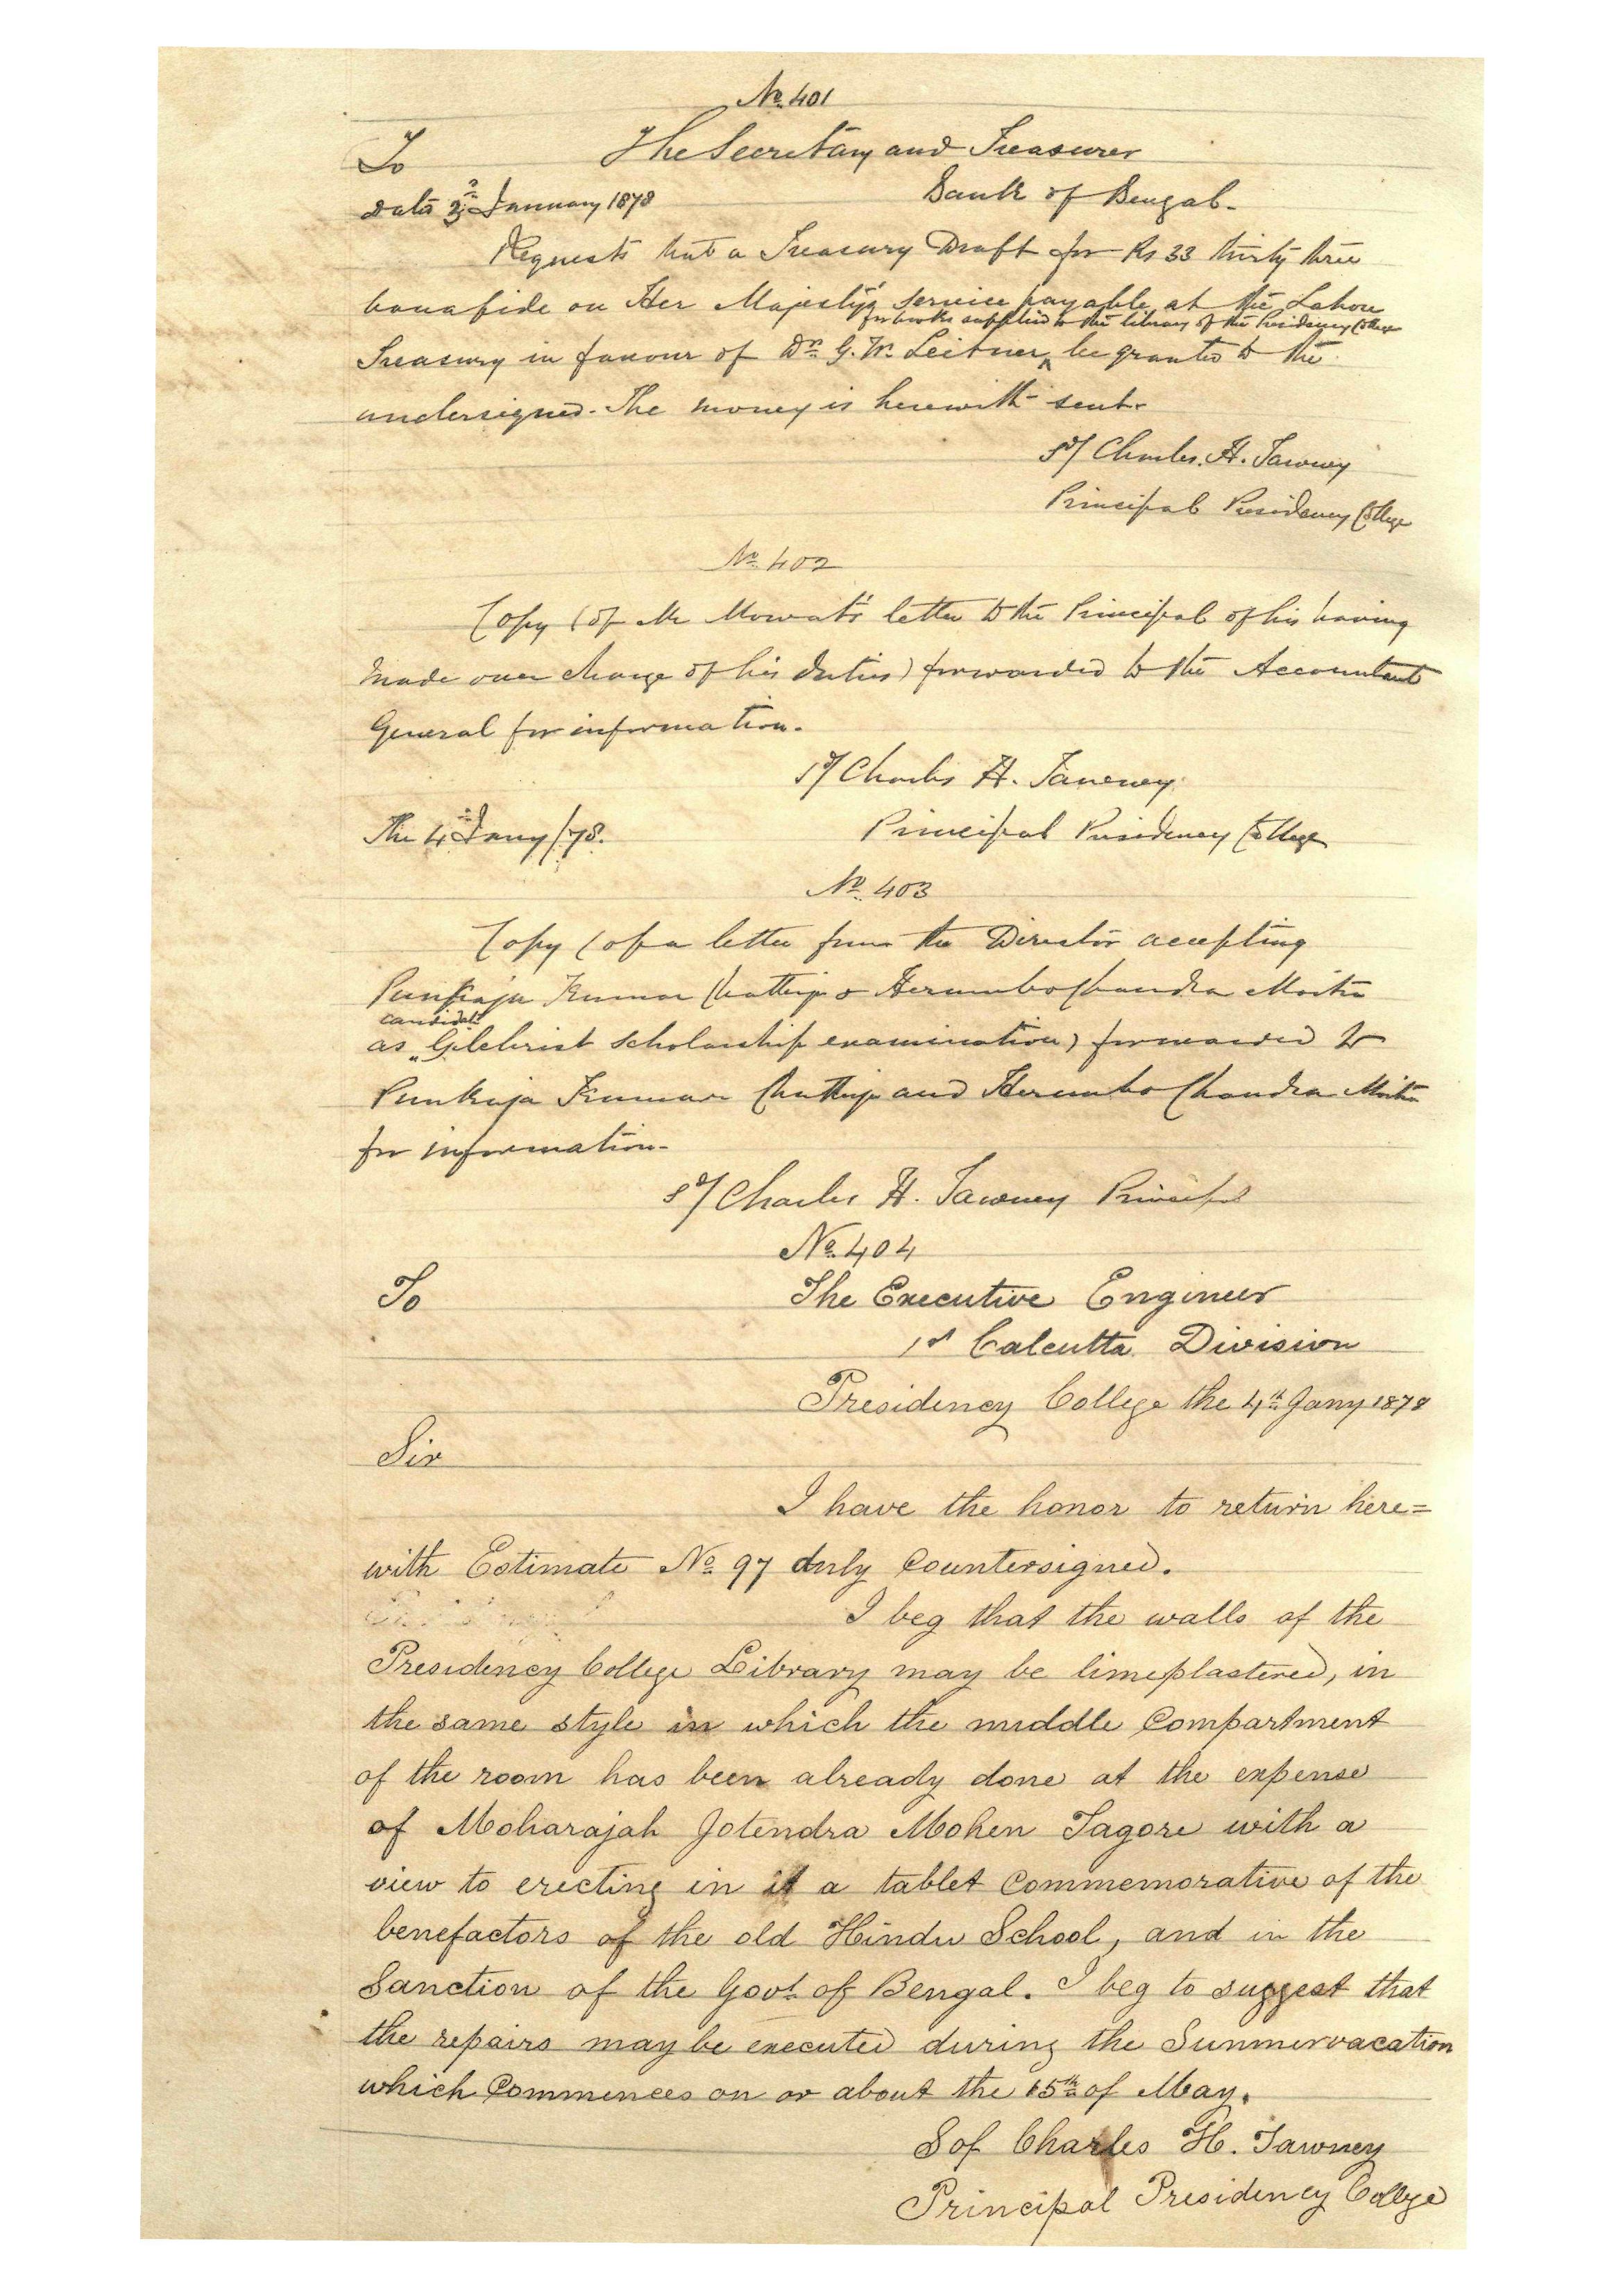 No. 401
To The Secretary and Treasurer
Date 3rd January 1878 Bank of Bengal.
Requests that a Treasury Draft for Rs 33 thirty three
bonafide on Her Majesty's service payable at the Lahore
for books supplied to the library of the Presidency College
Treasury in favour of Dr. G. W. Leitner ^ be granted to the
undersigned. The money is herewith sent.
Sd/ Charles. H. Tawney
Principal Presidency College
No. 402
Copy (of Mr Mowat's letter to the Principal of his having
made over charge of his duties) forwarded to the Accountant
General for information.
Sd/ Charles H. Tawney
The 4th Jany/78. Principal Presidency College
No. 403
Copy (of a letter from the Director accepting
Punkaja Kumar Chatterji & Herumbo Chandra Moitra
candidate
as Gilchrist scholarship examination) forwarded to
Punkaja Kumar Chatterji and Herumbo Chandra Moitra
for information.
Sd/ Charles H. Tawney Principal
No. 404
To The Executive Engineer
1st Calcutta Division
Presidency College the 4th Jany 1878
Sir
I have the honor to return here=
with Estimate No. 97 duly Countersigned.
I beg that the walls of the
Presidency College Library may be limeplastered, in
the same style in which the middle Compartment
of the room has been already done at the expense
of Moharajah Jotendra Mohen Tagore with a
view to erecting in it a tablet Commemorative of the
benefactors of the old Hindu School, and in the
Sanction of the Govt. of Bengal. I beg to suggest that
the repairs may be executed during the Summervacation
which Commences on or about the 15th of May.
Sd/ Charles H. Tawney
Principal Presidency College